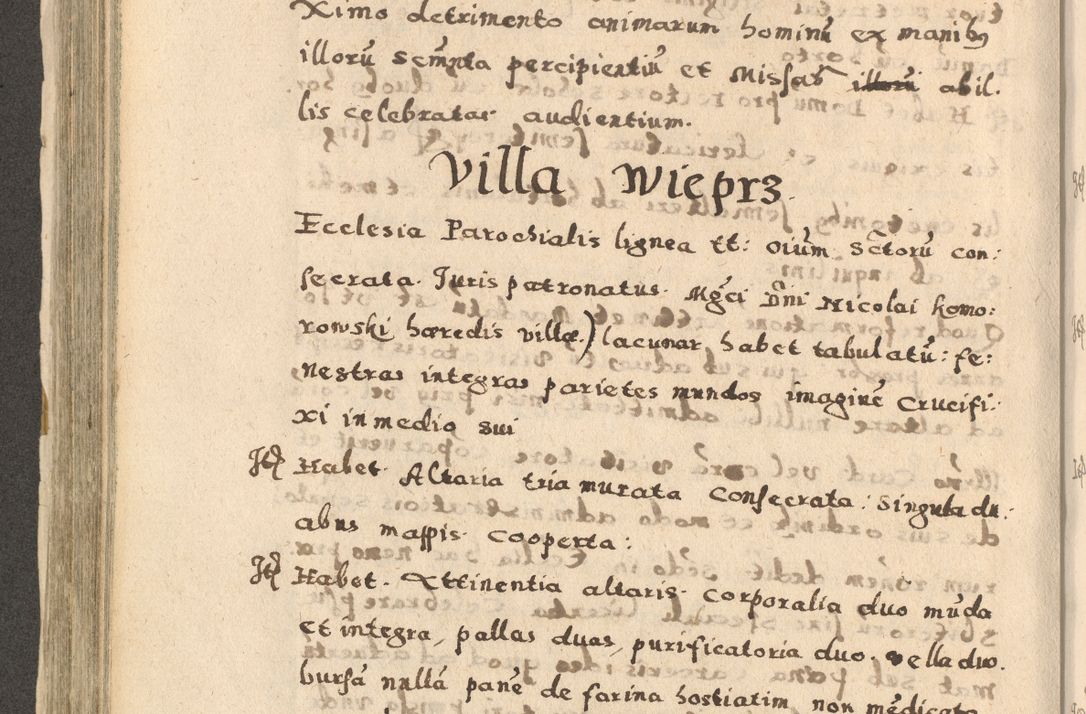 ximo detrimento animarum hominū ex manibꝫ
illorū Sacrm̄nta percipientiū et Missas̄ illorū abil.
lis celebratas audientium.
Villa Wieprz.
Ecclesia Parochialis lignea tt: oīum Sc̄torū con:
secrata. Juris patronatus. Mg̃ci Dn̄i Nicolai Komo:
rowski hæredis villæ.) lacunar habet tabulatū: fe:
nestras integras parietes mundos imaginē Crucifi:
xi in medio sui
Itē Habet. Altaria tria murata Consecrata: Singula du:
abus mappis Cooperta:
Itē Habet. Attinentia altaris. Corporalia duo mūda
et integra, pallas duas, purificatoria duo. vella duo.
bursā nullā panē de farina hostiatim non mēdicata